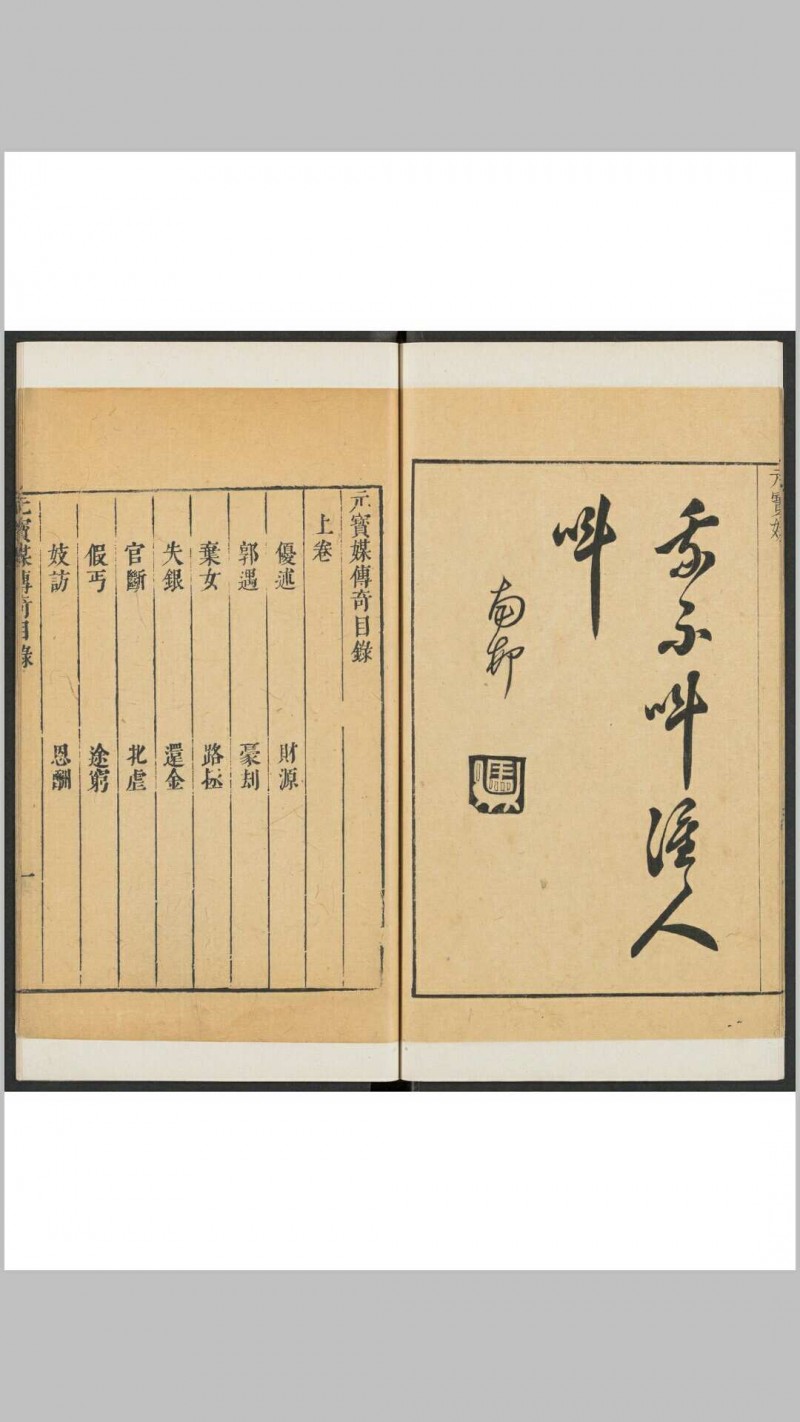 元寶媒
我不呌誰人
呌
南邨
元寶媒傳奇目錄
上卷
優述 財源
郭遇 豪刦
棄女 路拯
失銀 還金
官斷
假丐 途窮
妓訪 恩酬
元寶媒傳奇目錄 一